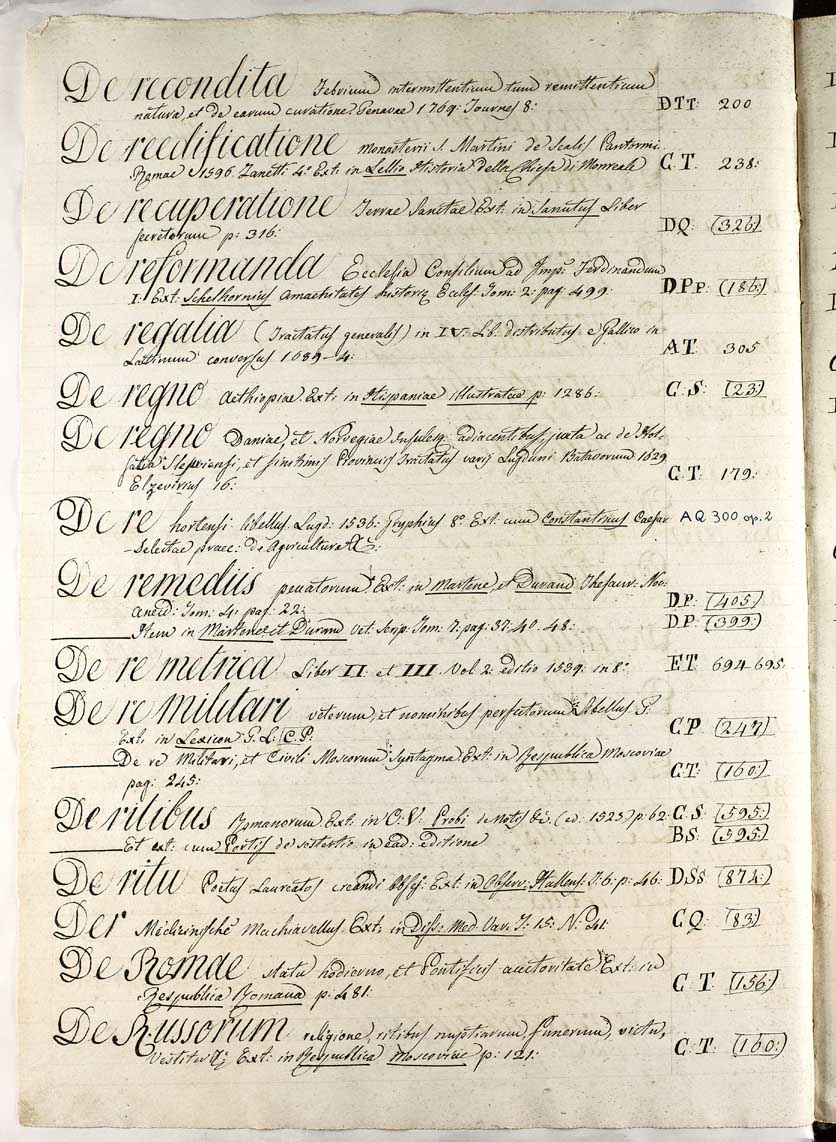 De recondita Febrium intermittentium tum remittentium
natura, et de earum curatione. Genavae 1769: Tournes 8: DTT: 200
De reedificatione monasterii S. Martini de Scalis Panormi
Romae 1596. Zanetti 4° Ext: in Lellio Historia della Chiesa di Monreale C.T. 238:
De recuperatione Terrae Sanctae. Ext: in Sanutus Liber
secretorum p: 316: DQ: (326)
De reformanda Ecclesia Consilium ad Imp: Ferdinandum
I: Ext: Schelhornius Amaenitates historię Ecclef: Tom: 2: pag: 499: DPp: (186:)
De regalia (Tractatus generalis) in IV: Lb: distributus e Gallico in
Latinum conversus 1689-4: AT: 305
De regno Aethiopiae. Ext: in Hispaniae illustratae p: 1286: C.S: (23:)
De regno Daniae, et Norvegiae Insulisq: adiacentibus, juxta ac de Hol-
satia Slesviensi, et finitimis Provinciis Tractatus varij Lugduni Batavorum 1629
Elzevirius 16: C.T: 179:
De re hortensi libellus. Lugd: 1536: Gryphius 8° Ext: cum Constantinus Caesar AQ 300 op. 2
-Selectae praec: de Agricultura &:
De remediis peccatorum. Ext: in Martene, et Durand Thesaur: Nov:
anecd: Tom: 4: pag: 22: D.P: (405:)
Item in Martene et Durand Vet: Scrip: Tom: 7: pag: 37: 40: 48: D.P: (399:)
De re metrica Liber II et III Vol 2. editio 1539: in 8° ET 694-695:
De re militari veterum, et nominibus perfectorum Libellus G:
Ext: in Lexicon G: L: C.P: C.P: (247)
De re Militari, et Civili Moscorum Syntagma. Ext: in Respublica Moscoviae
pag: 245: C.T: (160:)
De ritibus Romanorum. Ext: in C: V: Probi de Notis &c. (ed: 1525) p: 62: C.S: (595:)
Et ext: cum Portiſ de sestertio in ead: editione BS: (395:)
De ritu Poetas Laureatos creandi Obsſ: Ext: in Observ: Hallens: T: 6: p: 46: DSs (874:)
Der Medizinsche Machiavellus. Ext: in Diss: Med: Var: T: 15: N° 41: CQ: (83:)
De Romae statu hodierno, et Pontificis auctoritate. Ext: in
Respublica Romana p: 481: C.T. (156:)
De Russorum religione, ritibus nuptiarum, funerum, victu,
Vestitu &: Ext: in Respublica Moscoviae p: 121: C.T: (160:)